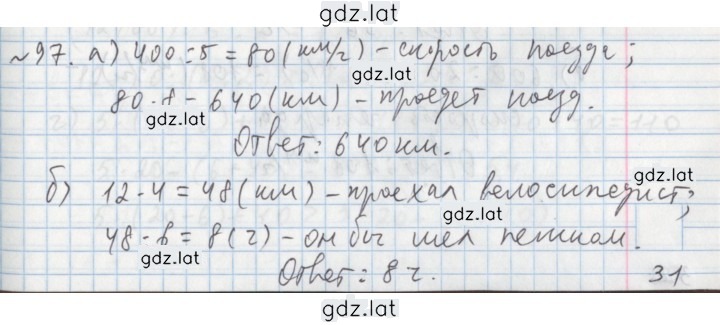 gdz.lat
№97. а) 400:5=80(км/ч) – скорость поезда;
gdz.lat
80·8–640(км) – проедет поезд.
gdz.lat
Ответ: 640 км.
gdz.lat
б) 12·4=48(км) – проехал велосипедист;
48:6=8(ч) – он бы шел пешком.
gdz.lat
Ответ: 8 ч. 31
gdz.lat